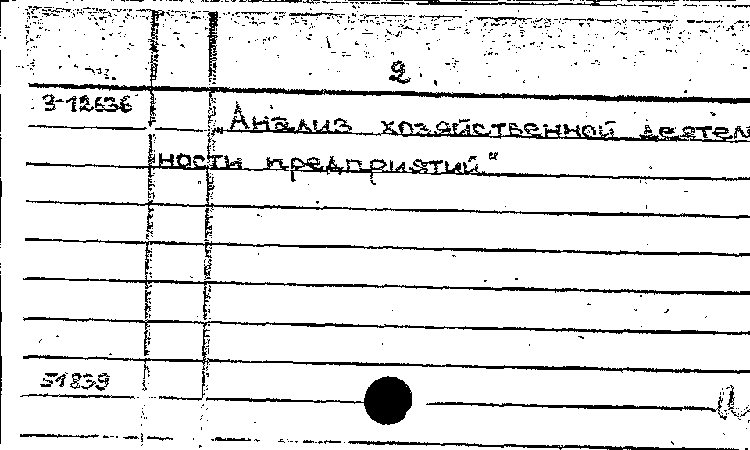 2
3-12636
„Анализ хозяйственной деятел
ности предприятий."
51839